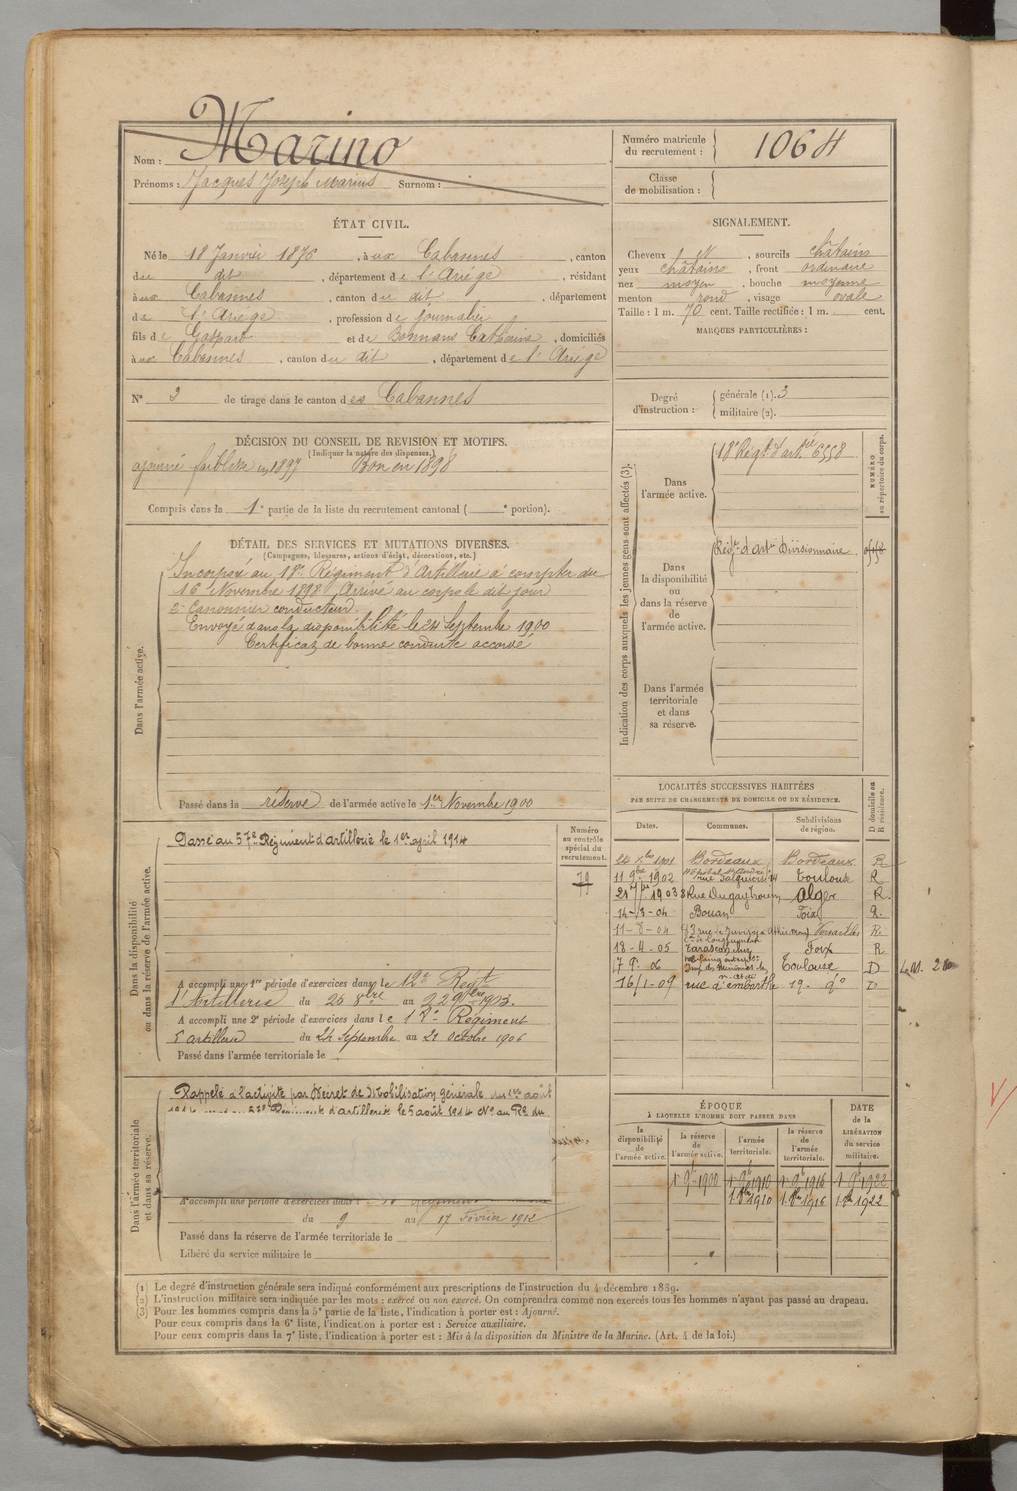 Nom : Marino
Prénoms : Jacques Joseph Marius Surnom :
Numéro matricule du recrutement : 1064
Classe de mobilisation :
ÉTAT CIVIL.
Né le 18 Janvier 1876, à ux Cabannes, canton
du dit, département de l'Ariège, résidant
à ux Cabannes, canton du dit, département
de l'Ariège, profession de journalier
fils de Gaspard et de Bonnans Catherine, domiciliés
à ux Cabannes, canton du dit, département de l'Ariège
SIGNALEMENT.
Cheveux et, sourcils châtains
yeux châtains, front ordinaire
nez moyen, bouche moyenne
menton rond, visage ovale
Taille : 1 m. 70 cent. Taille rectifiée : 1 m. cent.
MARQUES PARTICULIÈRES :
N° 3 de tirage dans le canton des Cabannes
Degré d'instruction : générale (1). 3
militaire (2).
DÉCISION DU CONSEIL DE REVISION ET MOTIFS.
(Indiquer la nature des dispenses.)
ajourné faiblesse en 1897 Bon en 1898
Compris dans la 1e partie de la liste du recrutement cantonal ( e portion).
DÉTAIL DES SERVICES ET MUTATIONS DIVERSES.
(Campagnes, blessures, actions d'éclat, décorations, etc.)
Dans l'armée active.
Incorporé au 18e Régiment d'Artillerie à compter du
16 Novembre 1898 Arrivé au corps le dit jour
2e Canonnier conducteur.
Envoyé dans la disponibilité le 24 Septembre 1900
Certificat de bonne conduite accordé
Passé dans la réserve de l'armée active le 1er Novembre 1900
Indication des corps auxquels les jeunes gens sont affectés (3).
NUMÉRO au répertoire du corps.
Dans l'armée active.
18e Régt d'artie 6558
Dans la disponibilité ou dans la réserve de l'armée active.
Régt d'artie Divisionnaire
Dans l'armée territoriale et dans sa réserve.
LOCALITÉS SUCCESSIVES HABITÉES
PAR SUITE DE CHANGEMENTS DE DOMICILE OU DE RÉSIDENCE.
D domicile ou R résidence.
Dates. Communes. Subdivisions de région.
24 Xbre 1901 Bordeaux Bordeaux R
11 9bre 1902 rue Toulouse R
21 1903 8 Rue Dugaytrouin Alger R.
14-3-04 Bouan Foix R.
11-8-04 Versailles R.
18-4-05 Tarascon Foix R
Toulouse D
16/1-09 rue d'embarthe 19- do D
Dans la disponibilité ou dans la réserve de l'armée active.
Numéro au contrôle spécial du recrutement.
79
Passé au 57e Régiment d'artillerie le 1er april 1914
A accompli une 1re période d'exercices dans le 12e Régt
d'Artillerie du 26 8bre au 22 9bre 1903.
A accompli une 2e période d'exercices dans le 18e Régiment
d'artillerie du 24 Septembre au 21 octobre 1906
Passé dans l'armée territoriale le
Dans l'armée territoriale et dans sa réserve.
Rappelé à l'activité par Décret de Mobilisation Générale du 1er août
1914 au 23e Régiment d'artillerie le 5 août 1914 No au Re du
A accompli une période d'exercices dans le 18 Régiment
du 9 au 17 Février 1912
Passé dans la réserve de l'armée territoriale le
Libéré du service militaire le
ÉPOQUE
À LAQUELLE L'HOMME DOIT PASSER DANS
DATE de la LIBÉRATION du service militaire.
la disponibilité de l'armée active. la réserve de l'armée active. l'armée territoriale. la réserve de l'armée territoriale.
1 9bre 1900 1 9bre 1910 1 9bre 1916 1 9bre 1922
1. 8bre 1910 1. 8bre 1916 1 8bre 1922
(1) Le degré d'instruction générale sera indiqué conformément aux prescriptions de l'instruction du 4 décembre 1889.
(2) L'instruction militaire sera indiquée par les mots : exercé ou non exercé. On comprendra comme non exercés tous les hommes n'ayant pas passé au drapeau.
(3) Pour les hommes compris dans la 5e partie de la liste, l'indication à porter est : Ajourné.
Pour ceux compris dans la 6e liste, l'indication à porter est : Service auxiliaire.
Pour ceux compris dans la 7e liste, l'indication à porter est : Mis à la disposition du Ministre de la Marine. (Art. 4 de la loi.)